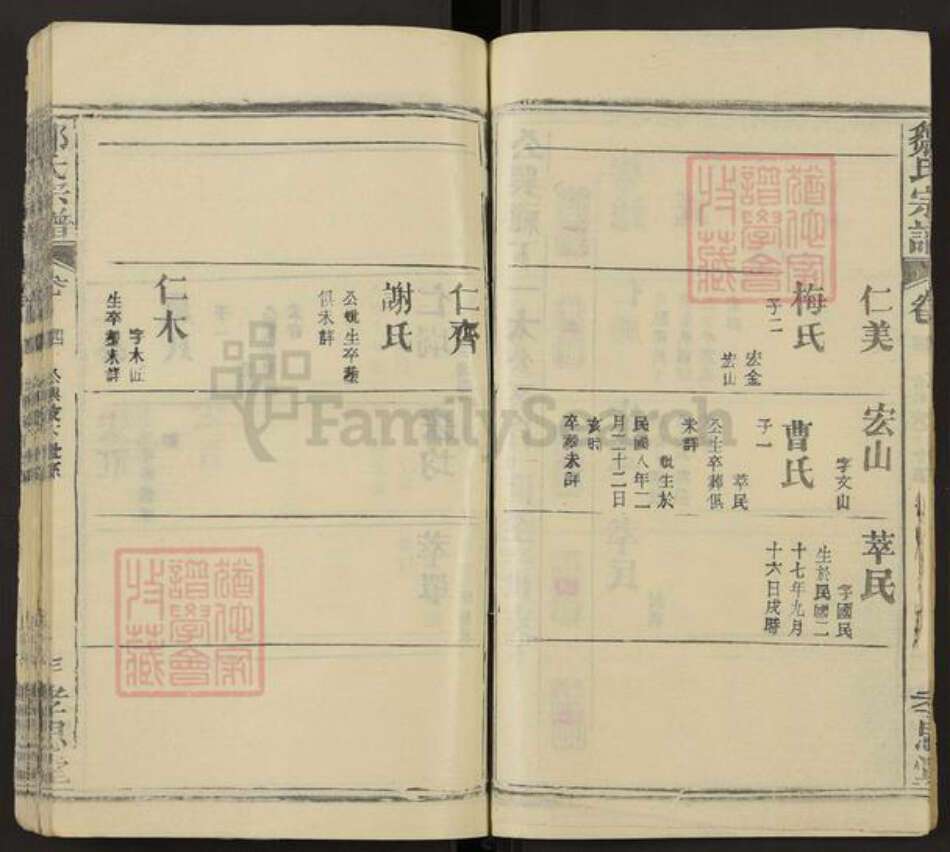 鄒氏宗譜
仁美
梅氏
子二
宏金
宏山
宏山
字文山
曹氏
子一
萃民
公生卒葬俱
未詳
氏生於
民國八年二
月二十二日
亥時
卒葬未詳
萃民
字國民
生於民國二
十七年九月
十六日戌時
孝思堂
仁齊
謝氏
公氏生卒葬
俱未詳
仁木
字木
生卒葬未詳
鄒氏宗譜
孝思堂
猶他家
譜學會
收藏
猶他家
譜學會
收藏
FamilySearch